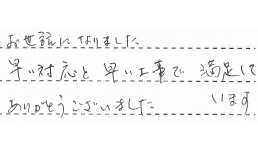 お世話になりました
早い対応と早い工事で 満足して
います
ありがとうございました